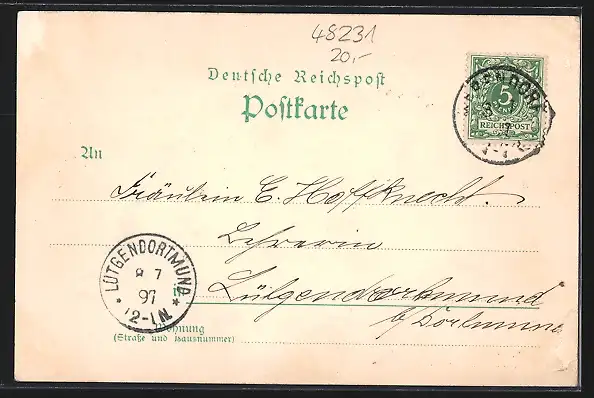 48231
20,-
Deutsche Reichspost
Postkarte
5
REICHSPOST
An
Fräulein E. Hoffknecht.
Lehrerin
in Lütgendortmund
b/Dortmund
LÜTGENDORTMUND
8 7
97
12-1N.
Wohnung
(Straße und Hausnummer)